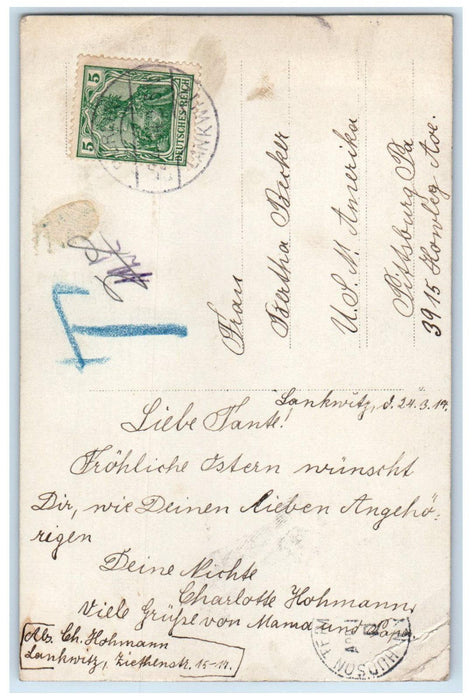 5 5
DEUTSCHES REICH
LANKWITZ
Frau
Bertha Becker
U. S. N. Amerika
Pittsburg Pa
3915 Howley Ave.
Lankwitz, d. 24.3.14.
Liebe Tante!
Fröhliche Ostern wünscht
Dir, wie Deinen lieben Angehö-
rigen
Deine Nichte
Charlotte Hohmann,
Viele Grüße von Mama und Papa
Abs. Ch. Hohmann
Lankwitz, Ziethenstr. 15-17.
HUDSON TERM
T